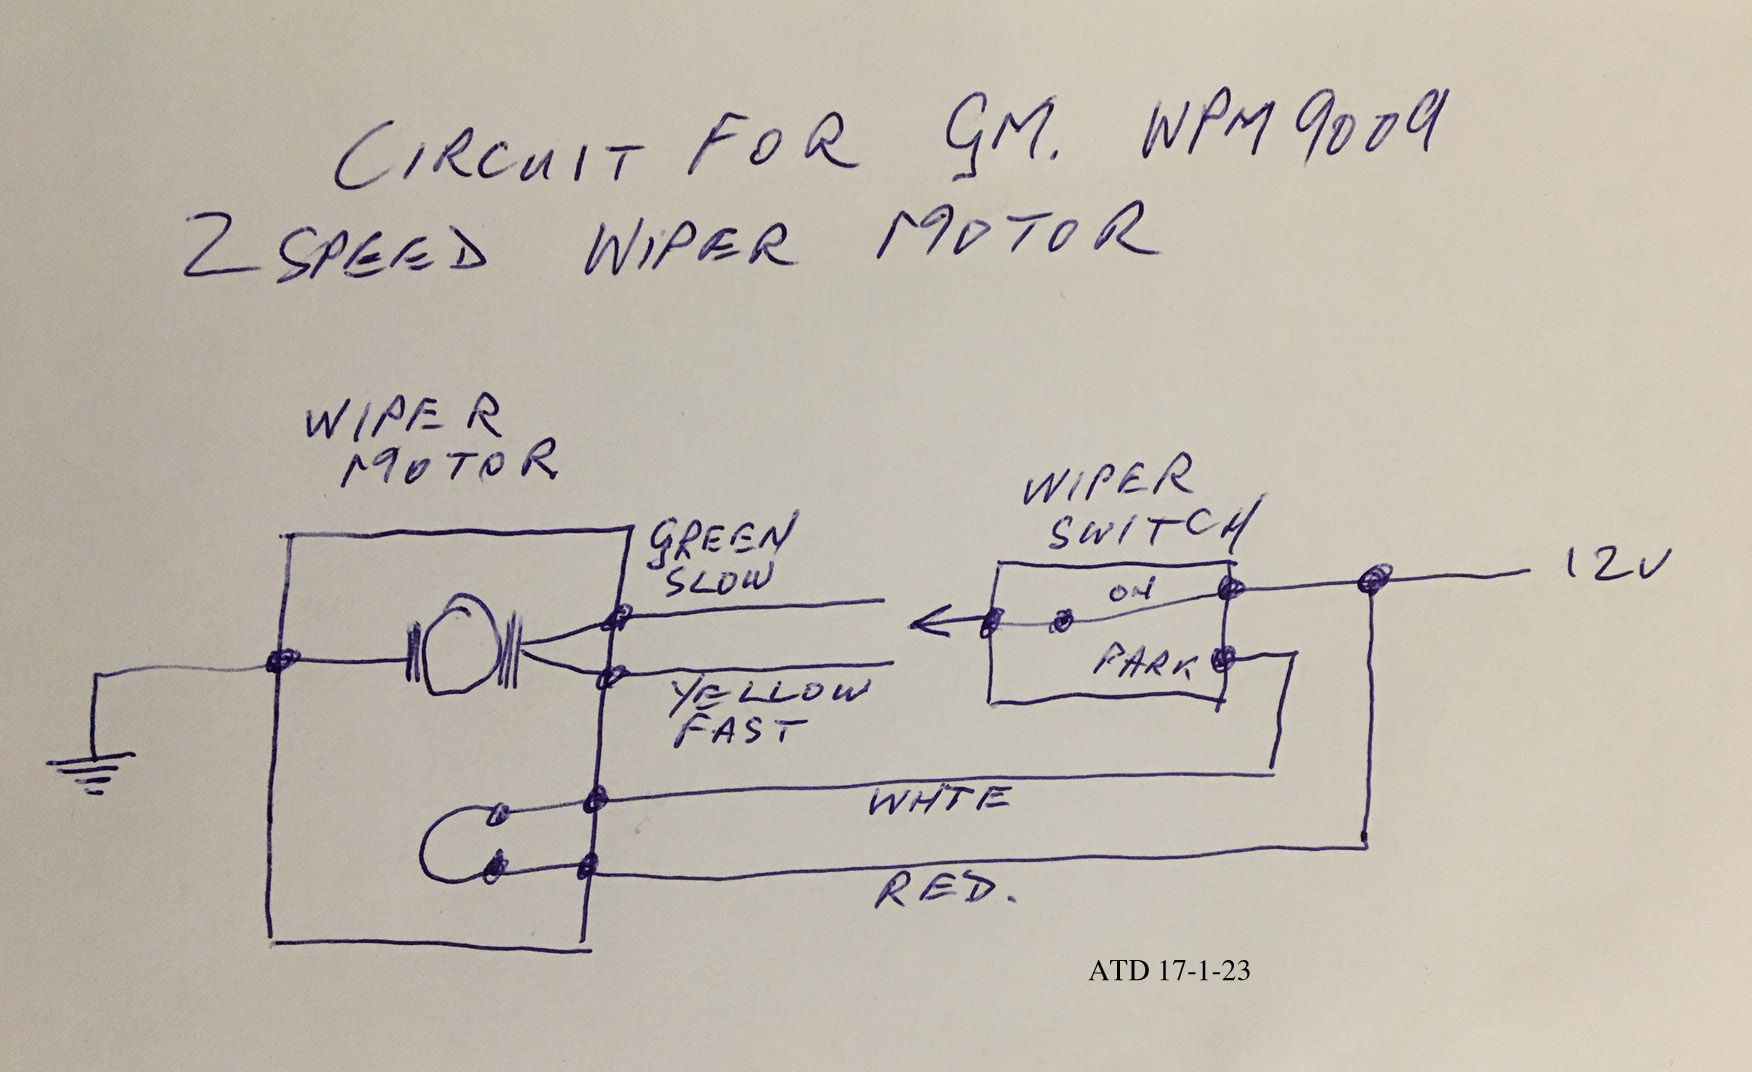 CIRCUIT FOR GM. WPM9009
2 SPEED WIPER MOTOR
WIPER
MOTOR
GREEN
SLOW
YELLOW
FAST
WIPER
SWITCH
ON
PARK
12V
WHTE
RED.
ATD 17-1-23